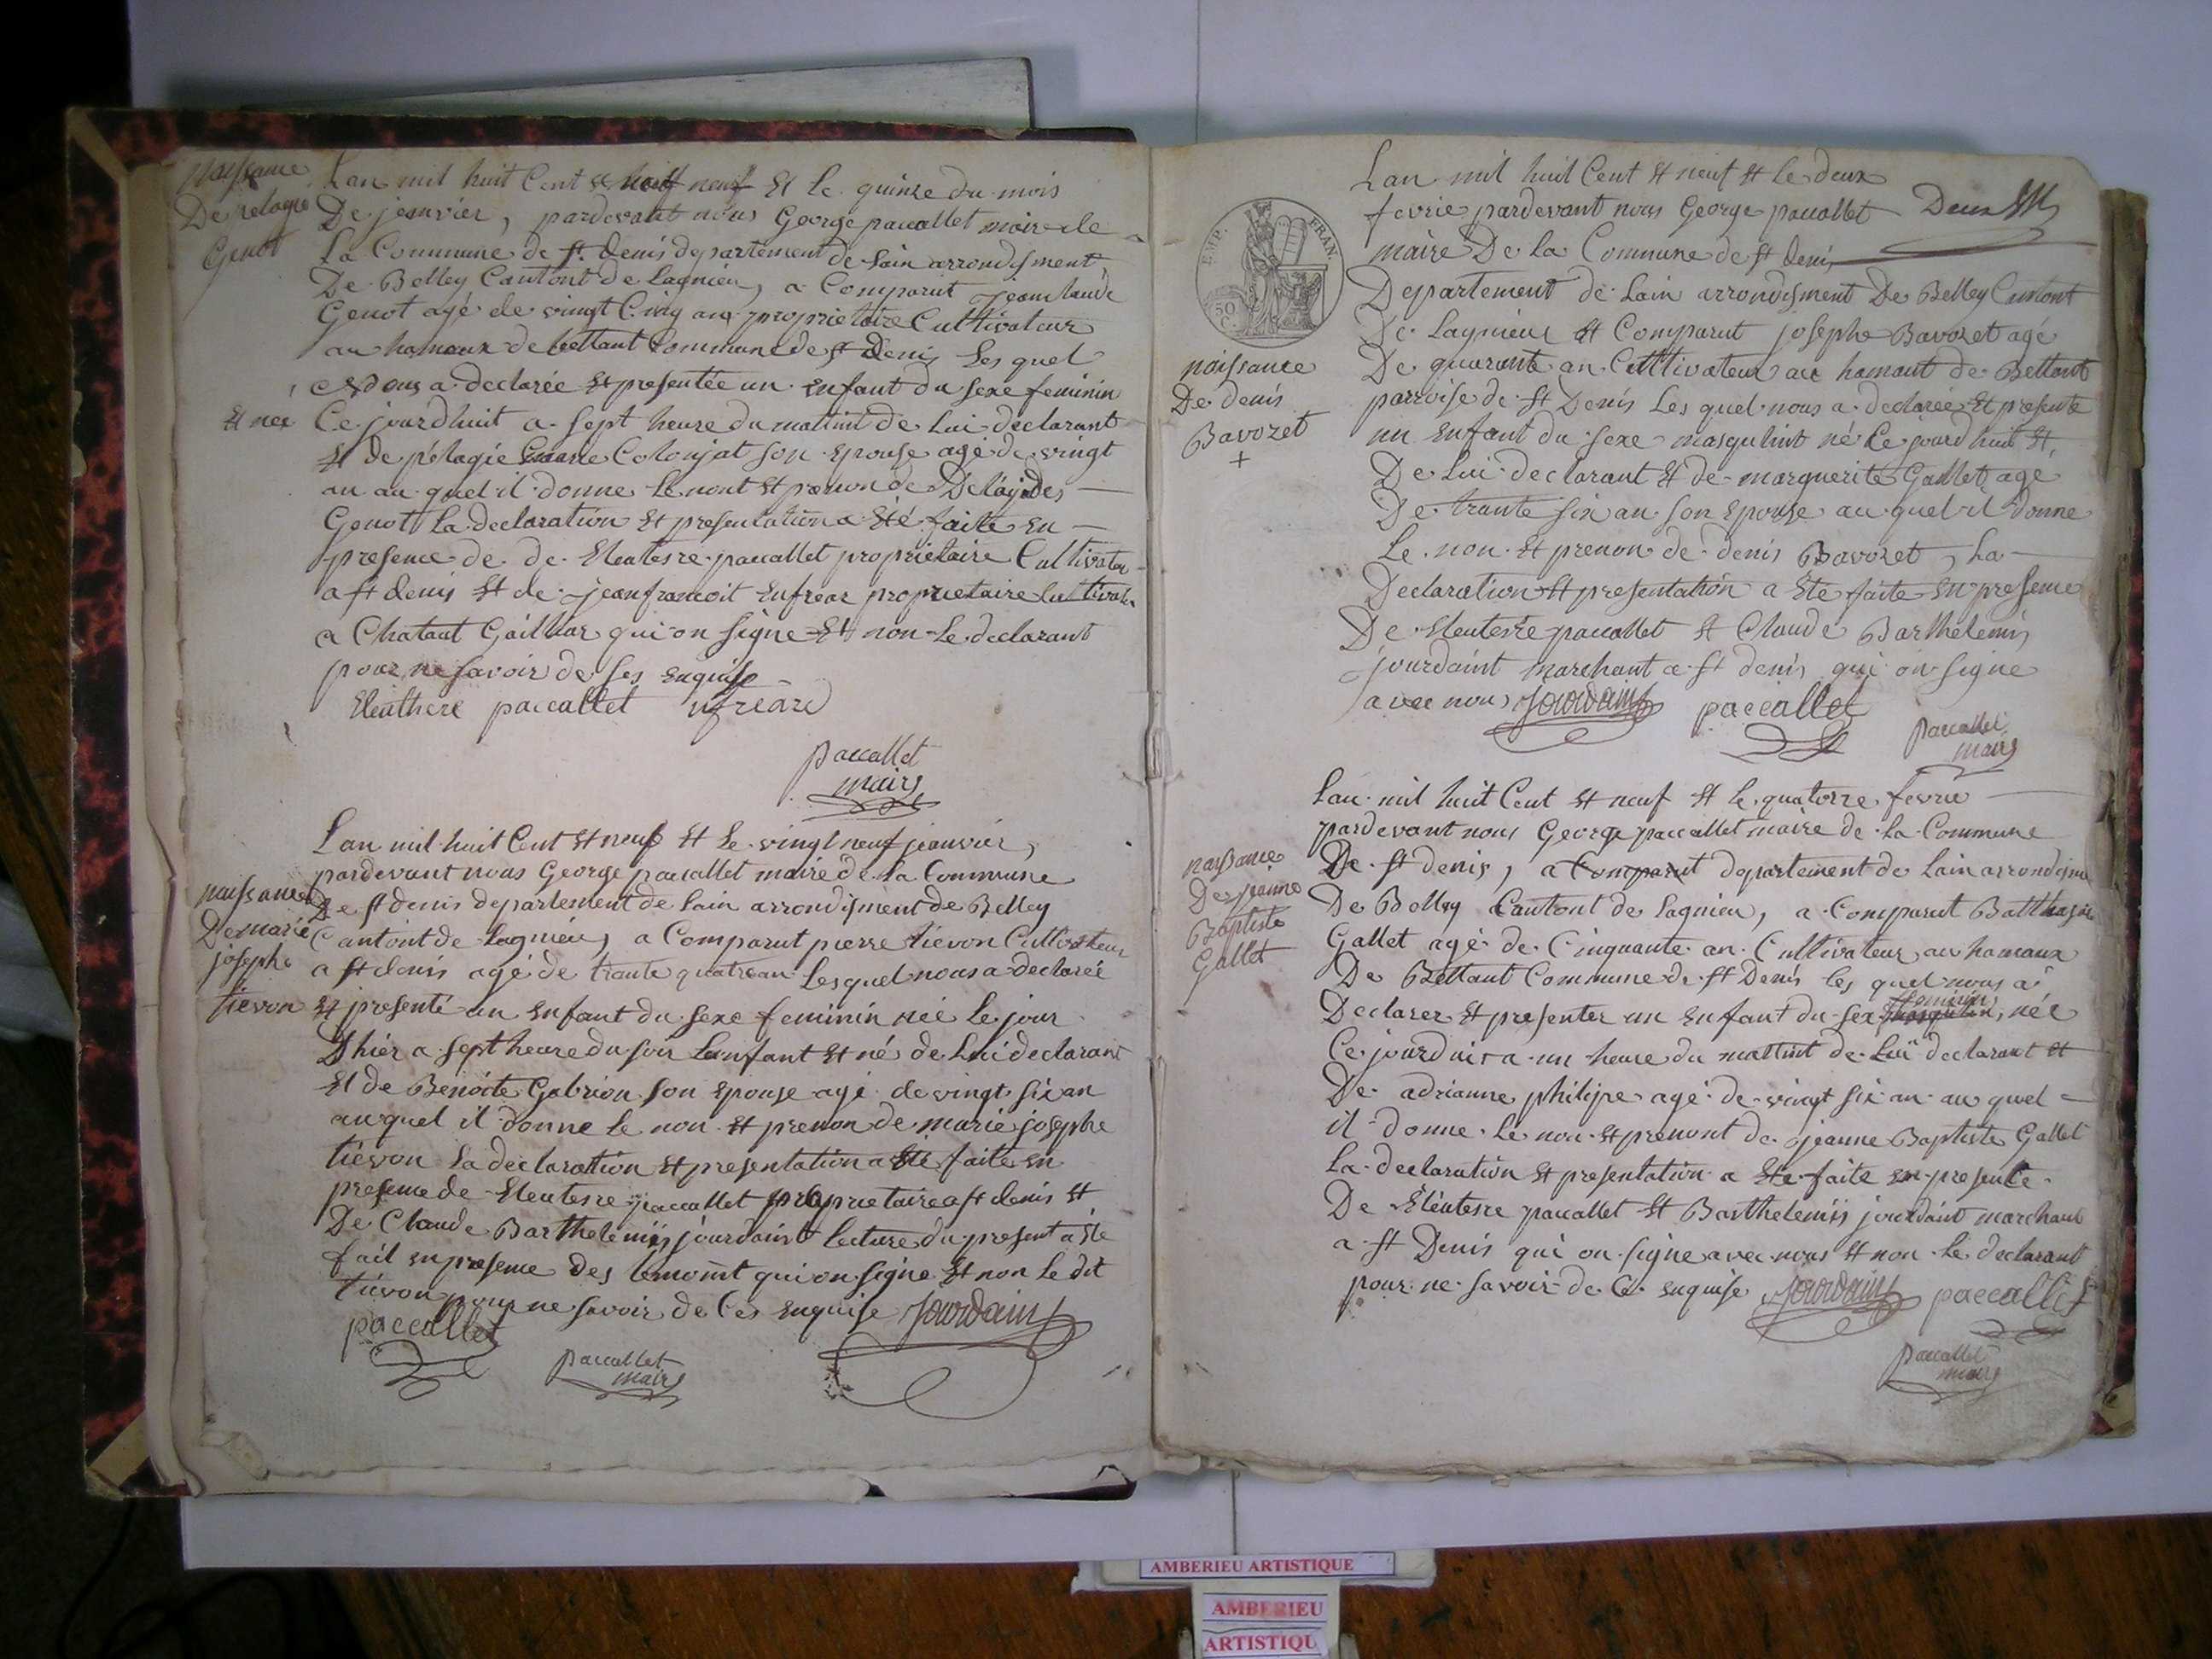 naissance
De pelagie
Genot
Lan mil huit Cent et neuf Et le quinze du mois
De jeanvier, pardevant nous George paccallet maire de
La Commune de st. denis departement de Lain arrondisment
De Belley Cantont de Lagnieu, a Comparut jeanclaude
Genot agé de vingt Cinq an proprietaire Cultivateur
au hameaux de bettant Commune de st Denis Les quel
nous a declarée Et presentée un enfant du sexe feminin
Et née
Ce jourdhuit a sept heure du mattint de Lui declarant
Et de pélagie Colonjat son Epouse agé de vingt
an au quel il donne Le nont Et prenon de
Genot La declaration Et presentation a Eté faite en
presence de de Eleutesre paccallet proprietaire Cultivateur
a st denis Et de jeanfrancoit Enfrear proprietaire Cultivateur
a Chataut Gailliar qui on signe Et non Le declarant
pour ne savoir de ses enquise
Eleuthere paccallet Enfreard
paccallet
maire
Lan mil huit Cent et neuf Et Le vingt neuf jeanvier,
pardevant nous George paccallet maire de La Commune
naissance
De marie
josephe
tievon
De st denis departement de Lain arrondisment de Belley
Cantont de Lagnieu, a Comparut pierre tievon Cultivateur
a st denis agé de trante quatre an Lesquel nous a declarée
Et presenté un enfant du sexe feminin née Le jour
Dhier a sept heure du soir Lenfant Et né de Lui declarant
Et de Benoite Gabrion son Epouse agé de vingt six an
auquel il donne Le non Et prenon de marie josephe
tievon La declaration Et presentation a Eté faite en
presence de Eleutesre paccallet proprietaire a st denis Et
De Claude Barthelemii jourdaint Lecture du present a Eté
fait en presence des temoint qui on signe Et non Le dit
tievon pour ne savoir de Ces enquise Jourdain
paccallet
paccallet
maire
EMP. FRAN.
50
C.
Lan mil huit Cent Et neuf Et Le deux
fevrie pardevant nous George paccallet
maire De La Commune de st denis
Departement de Lain arrondisment De Belley Cantont
De Lagnieu Et Comparut josephe Bavozet agé
naissance
De denis
Bavozet
+
De quarante an Cultivateur au hamaut de Bettant
parroise de st Denis Les quel nous a declarée Et presente
un enfant du sexe masqulint né Ce jourdhuit Et,
De Lui declarant Et de marguerite Gallet agé
De trante six an son Epouse au quel il donne
Le non Et prenon de denis Bavozet, La
Declaration Et presentation a Eté faite en presence
De Eleutesre paccallet Et Claude Barthelemi
jourdaint marchant a st denis qui on signe
avec nous Jourdain paccallet
paccallet
maire
Lan mil huit Cent Et neuf Et Le quatorze fevrie
pardevant nous George paccallet maire de La Commune
naissance
De jeanne
Baptiste
Gallet
De st denis, a Comparut departement de Lain arrondisment
De Belley Cantont de Lagnieu, a Comparut Batthazar
Gallet agé de Cinquante an Cultivateur au hamaux
De Bettant Commune de st Denis les quel nous a
Declarer Et presenter un enfant du sex feminin, née
Ce jourduit a un heure du mattint de Lui declarant Et
De adrianne philipe agé de vingt six an au quel
il donne Le non Et prenont de jeanne Baptiste Gallet
La declaration Et presentation a Eté faite en presente
De Eleutesre paccallet Et Barthelemii jourdaint marchant
a st Denis qui on signe avec nous Et non Le declarant
pour ne savoir de Ce enquise Jourdain paccallet
paccallet
maire
AMBERIEU ARTISTIQUE
AMBERIEU
ARTISTIQU